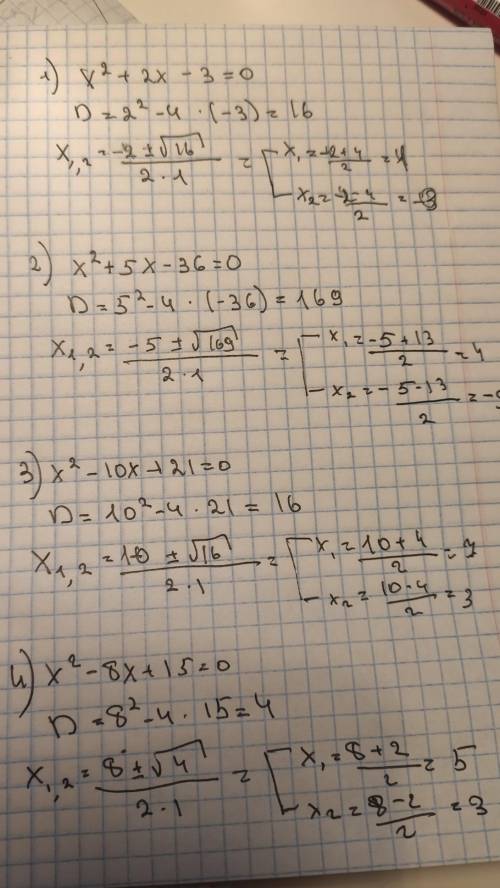 1) x² + 2x - 3 = 0
D = 2² - 4 · (-3) = 16
x₁,₂ = (-2 ± √16)/(2 · 1) = [ x₁ = (-2 + 4)/2 = 1
x₂ = (-2 - 4)/2 = -3
2) x² + 5x - 36 = 0
D = 5² - 4 · (-36) = 169
x₁,₂ = (-5 ± √169)/(2 · 1) = [ x₁ = (-5 + 13)/2 = 4
x₂ = (-5 - 13)/2 = -9
3) x² - 10x + 21 = 0
D = 10² - 4 · 21 = 16
x₁,₂ = (10 ± √16)/(2 · 1) = [ x₁ = (10 + 4)/2 = 7
x₂ = (10 - 4)/2 = 3
4) x² - 8x + 15 = 0
D = 8² - 4 · 15 = 4
x₁,₂ = (8 ± √4)/(2 · 1) = [ x₁ = (8 + 2)/2 = 5
x₂ = (8 - 2)/2 = 3